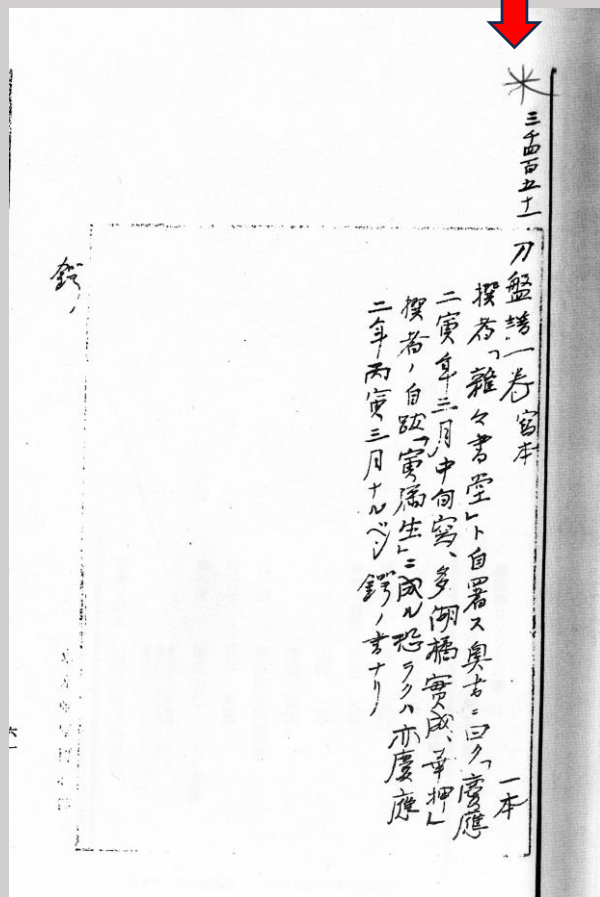 三千四百五十一
刀盤譜一巻 写本 一本
撰者「雜々書堂」ト自署ス奥書ニ曰ク「慶應
二寅年三月中旬写、多湖橘實成、華押」
撰者ノ自跋「寅滿生」ニ成ル恐ラクハ亦慶應
二年丙寅三月ナルベシ鍔ノ書ナリ
鍔ノ
六一